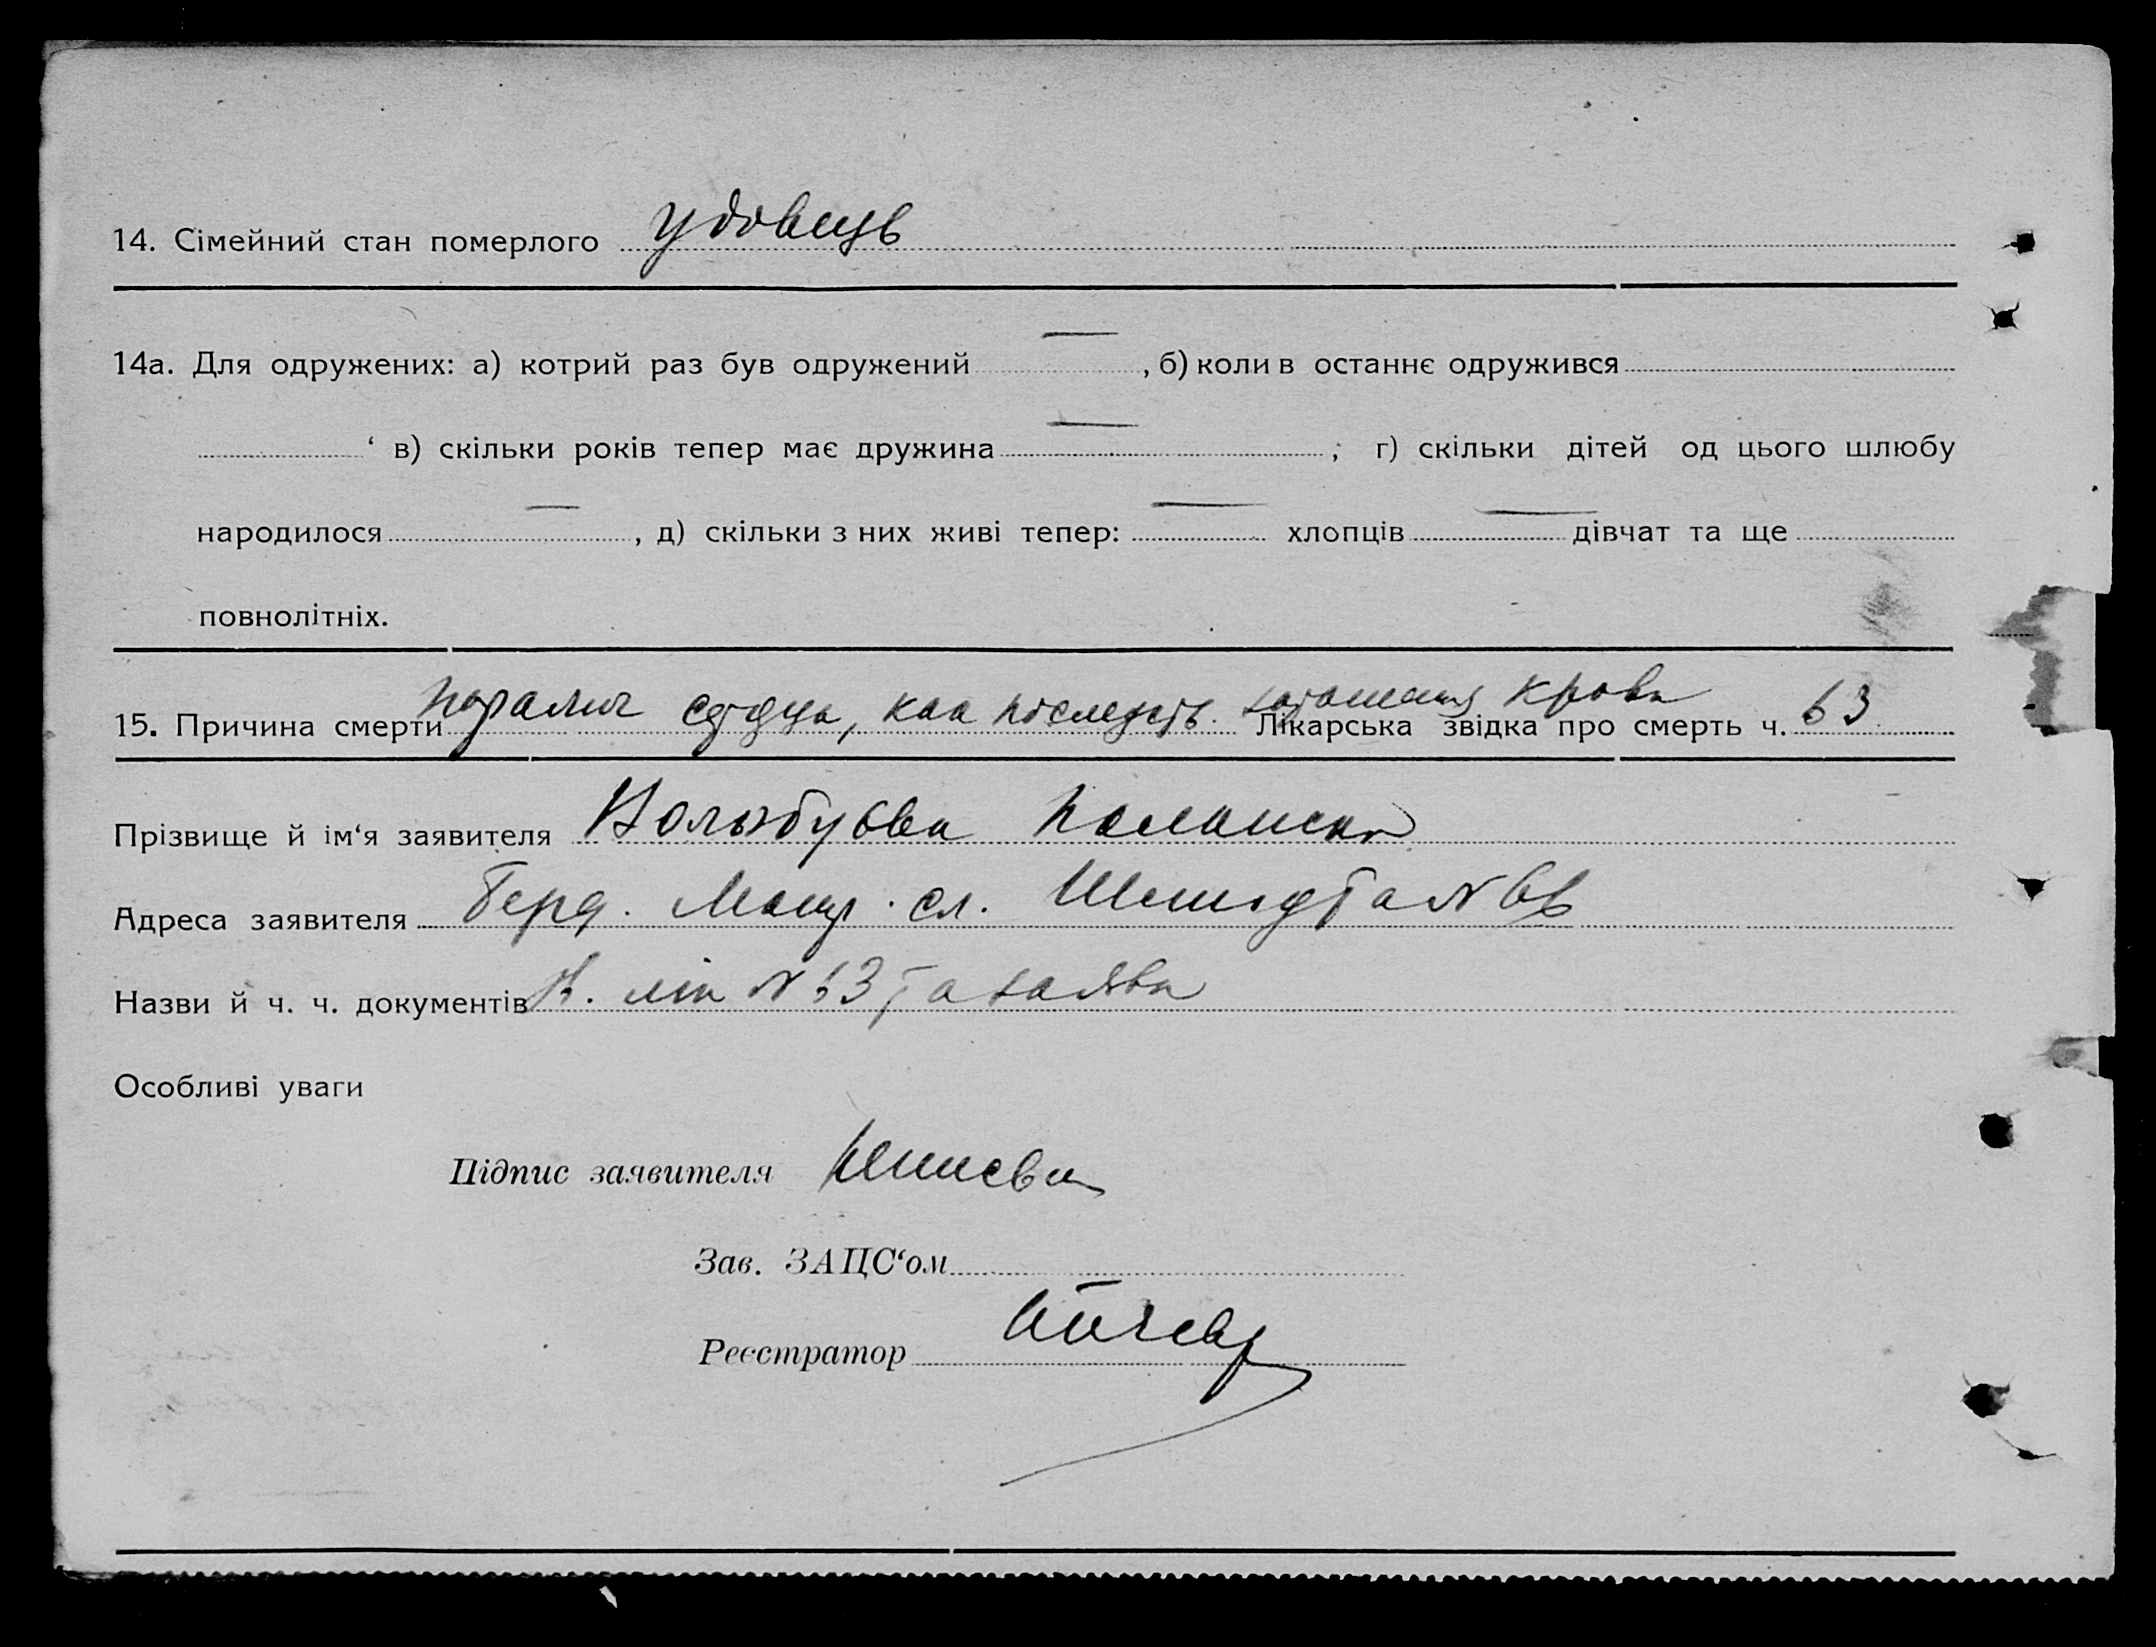 14. Сімейний стан померлого удовець
14а. Для одружених: а) котрий раз був одружений — , б) коли в останнє одружився
‘ в) скільки років тепер має дружина — ; г) скільки дітей од цього шлюбу
народилося — , д) скільки з них живі тепер: — хлопців — дівчат та ще
повнолітніх.
15. Причина смерти паралич сердца, как последств. крови Лікарська звідка про смерть ч. 63
Прізвище й ім‘я заявителя
Адреса заявителя Берд. сл. Шмидта № 66
Назви й ч. ч. документів № 63 та заява
Особливі уваги
Підпис заявителя
Зав. ЗАЦС‘ом
Реєстратор